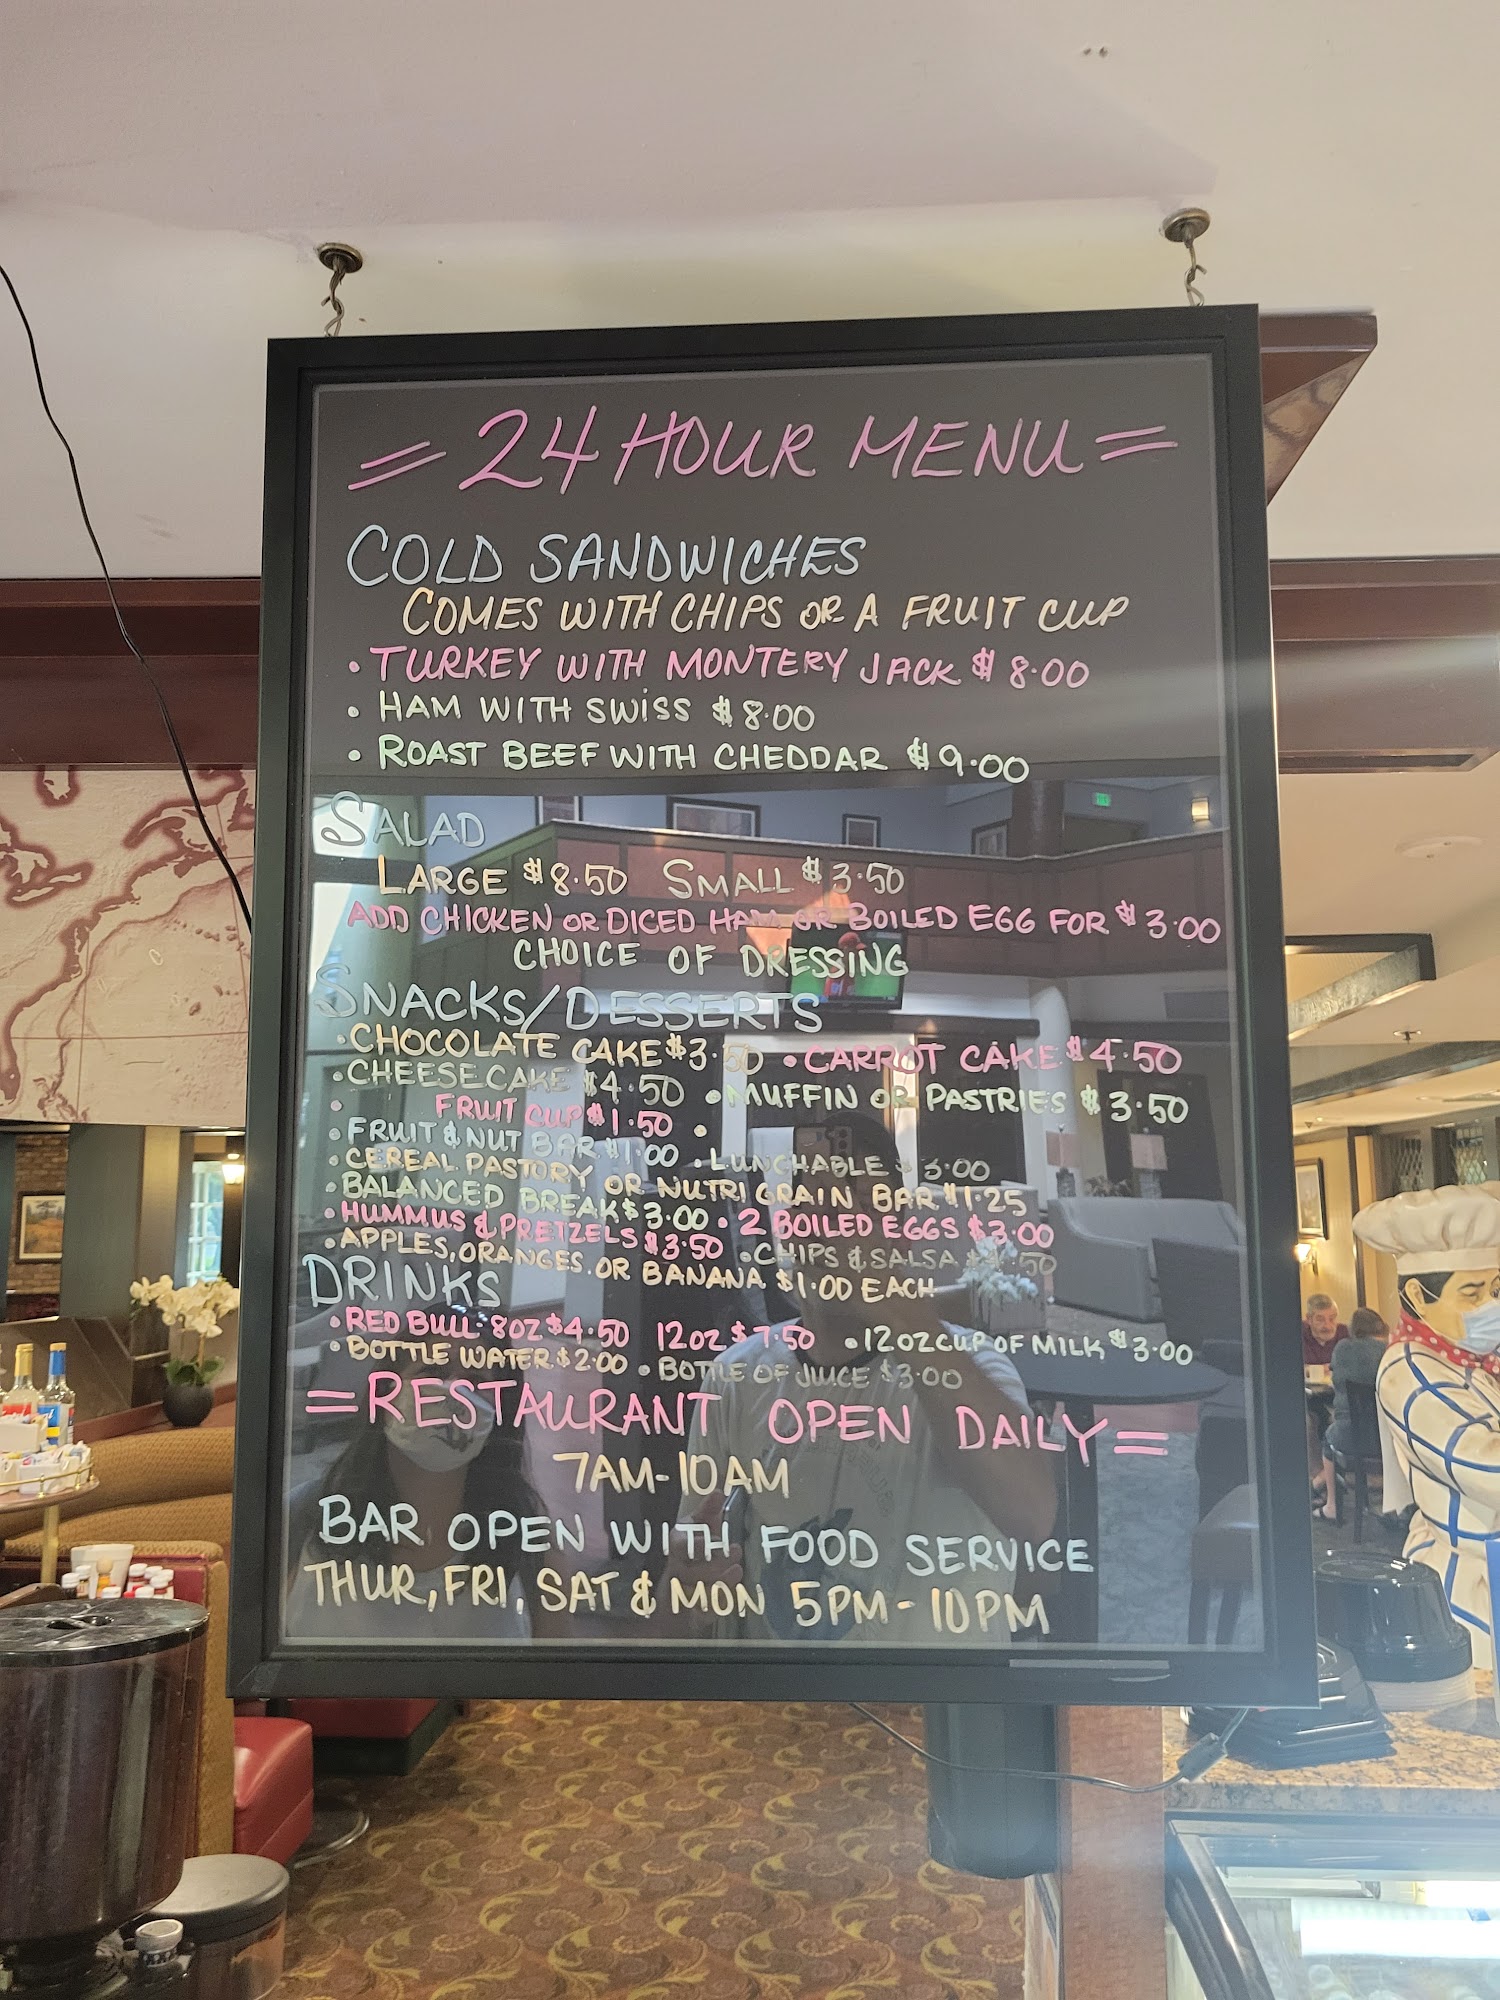 = 24 HOUR MENU =
COLD SANDWICHES
COMES WITH CHIPS OR A FRUIT CUP
• TURKEY WITH MONTERY JACK $ 8.00
• HAM WITH SWISS $ 8.00
• ROAST BEEF WITH CHEDDAR $ 9.00
SALAD
LARGE $ 8.50 SMALL $ 3.50
ADD CHICKEN OR DICED HAM OR BOILED EGG FOR $ 3.00
CHOICE OF DRESSING
SNACKS/DESSERTS
• CHOCOLATE CAKE $ 3.50 • CARROT CAKE $ 4.50
• CHEESE CAKE $ 4.50 • MUFFIN OR PASTRIES $ 3.50
• FRUIT CUP $ 1.50 •
• FRUIT & NUT BAR $ 1.00 • LUNCHABLE $ 3.00
• CEREAL PASTORY OR NUTRI GRAIN BAR $ 1.25
• BALANCED BREAK $ 3.00 • 2 BOILED EGGS $ 3.00
• HUMMUS & PRETZELS $ 3.50 • CHIPS & SALSA
• APPLES, ORANGES. OR BANANA $ 1.00 EACH
DRINKS
• RED BULL- 8OZ $ 4.50 12OZ $ 7.50 • 12OZ CUP OF MILK $ 3.00
• BOTTLE WATER $ 2.00 • BOTTLE OF JUICE $ 3.00
= RESTAURANT OPEN DAILY =
7AM-10AM
BAR OPEN WITH FOOD SERVICE
THUR, FRI, SAT & MON 5PM - 10PM